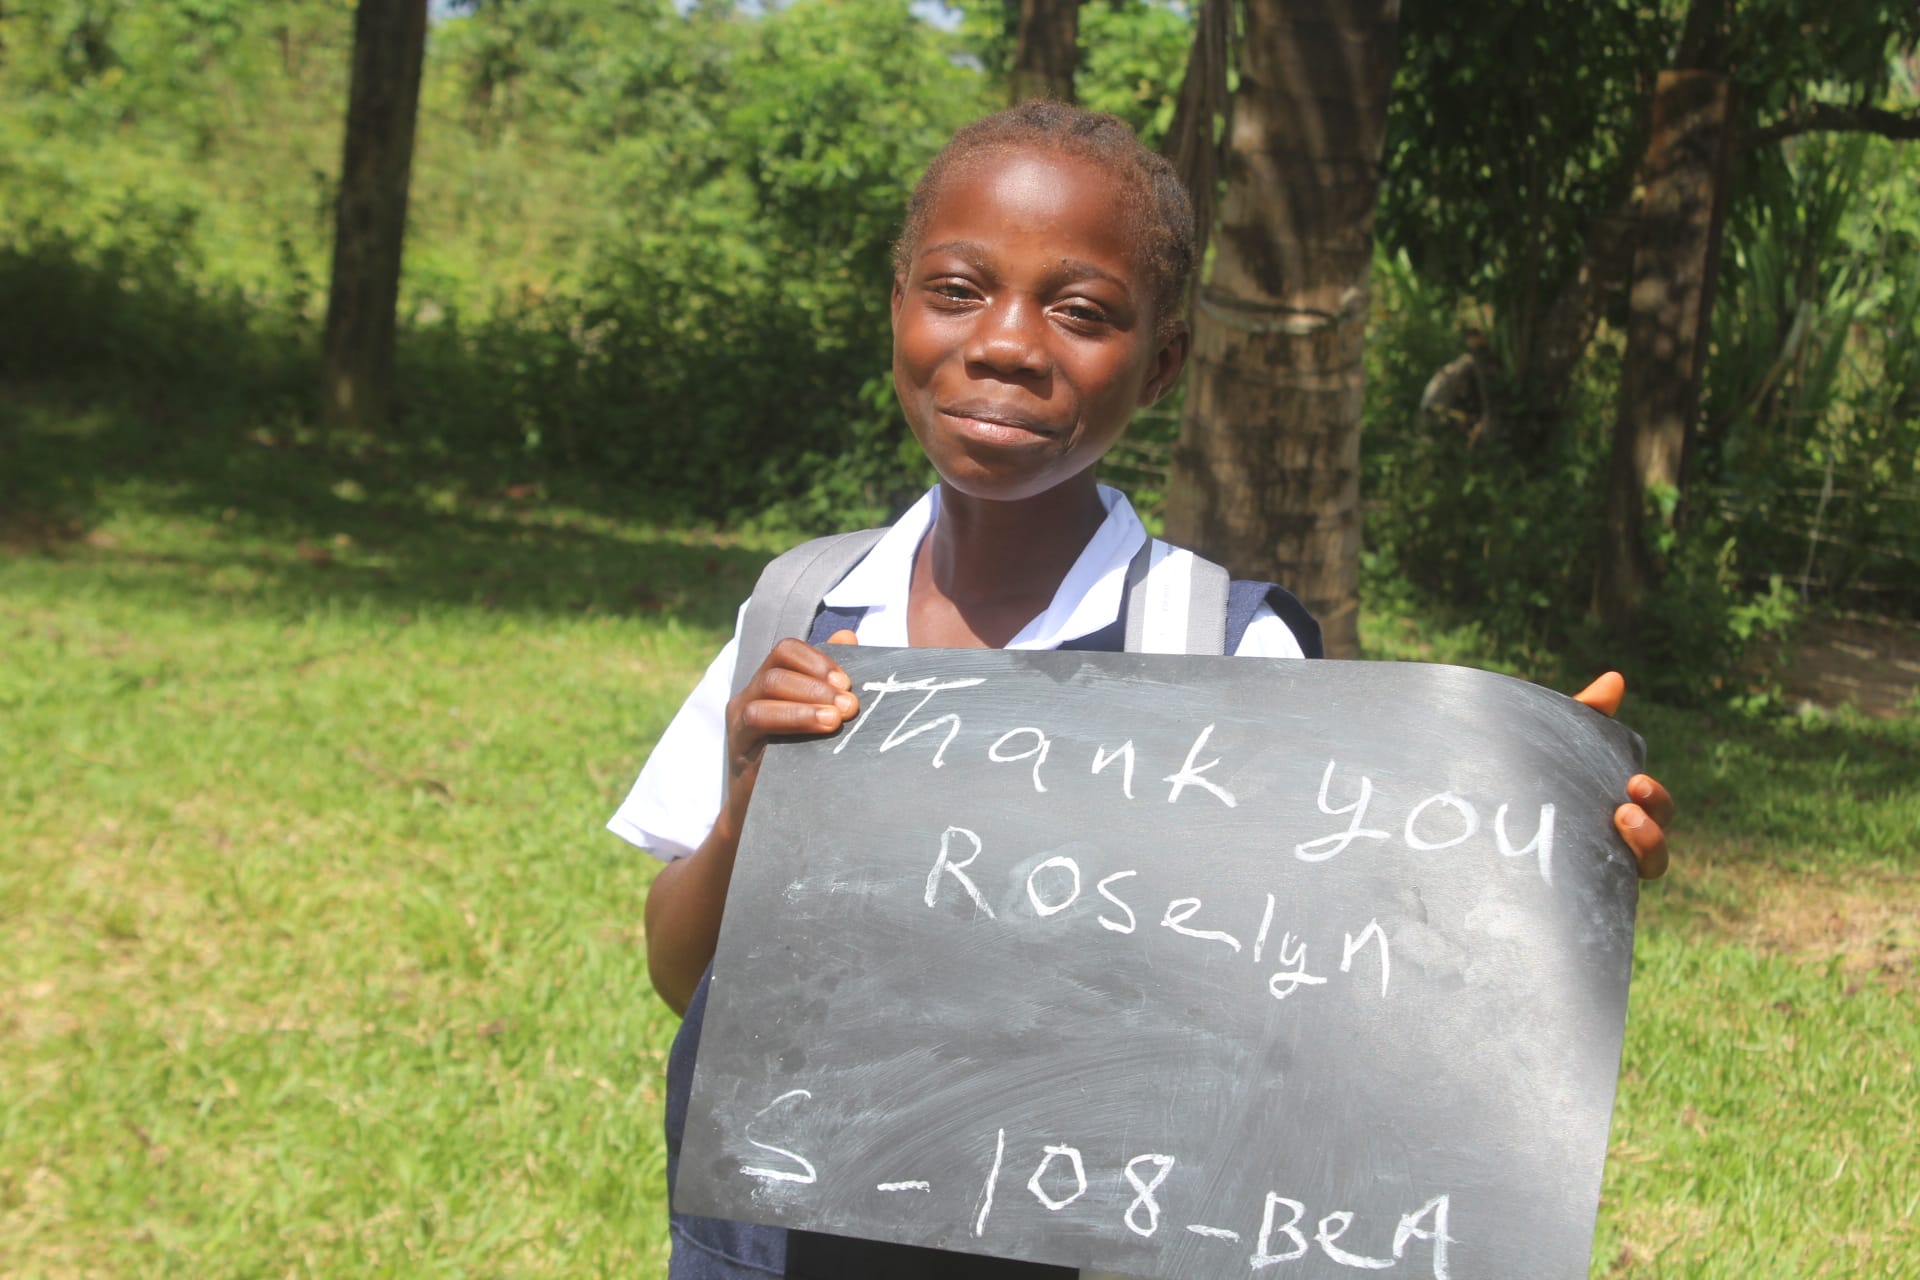 Thank you
Roselyn
S-108-BeA